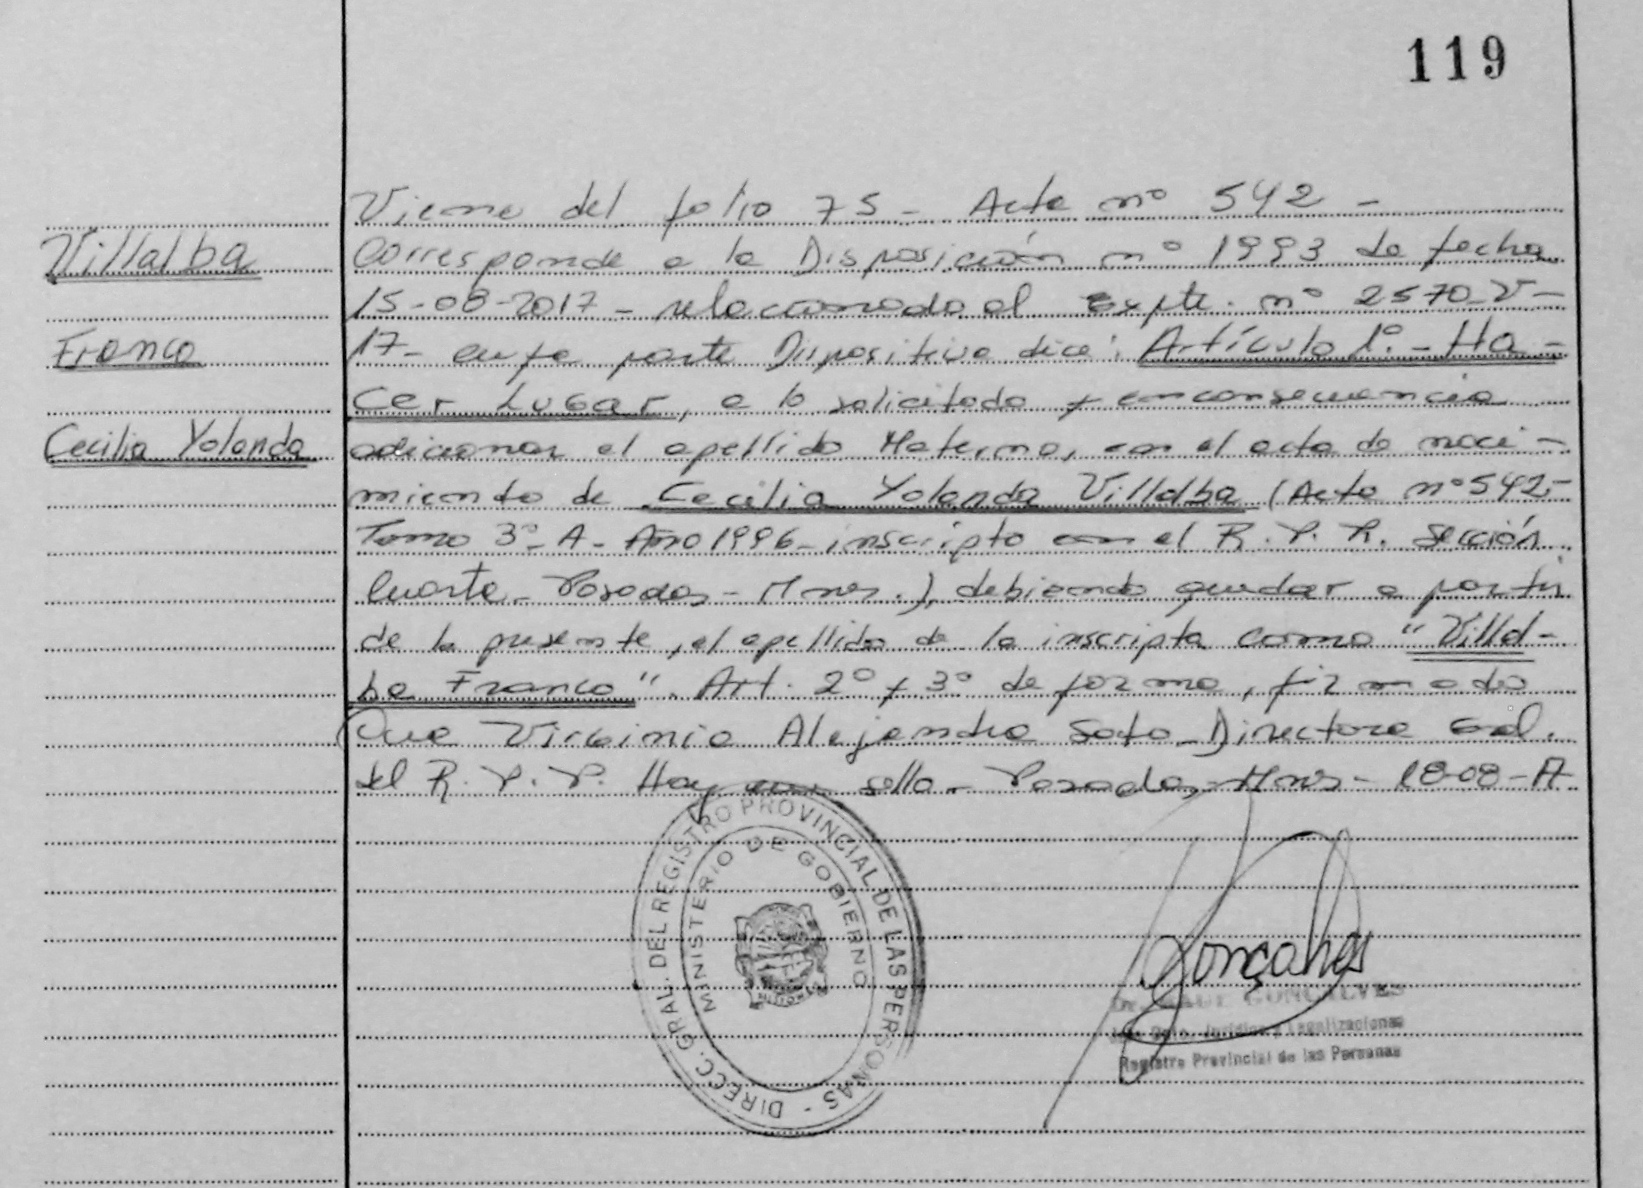 119
Viene del folio 75 - Acta nº 542 -
Villalba
Corresponde a la Disposición nº 1993 de fecha
15-08-2017 - relacionado al Expte. nº 2570-V-
Franco
17- cuya parte Dispositiva dice: Artículo 1º. - Ha-
cer Lugar, a lo solicitado y en consecuencia
Cecilia Yolanda
adicionar el apellido Materno, en el acta de naci-
miento de Cecilia Yolanda Villalba (Acta nº 542-
Tomo 3º- A - Año 1996 - inscripta en el R. P. P. Sección
Cuarta - Posadas - Mnes.), debiendo quedar a partir
de la presente, el apellido de la inscripta como "Villal-
ba Franco". Art. 2º y 3º de forma, firmado
Virginia Alejandra Soto - Directora Gral.
del R. P. P. Hay un sello - Posadas, Mnes - 18-08-
DIRECC. GRAL. DEL REGISTRO PROVINCIAL DE LAS PERSONAS -
MINISTERIO DE GOBIERNO
MISIONES
Gonçalves
GONÇALVES
Dpto. Jurídico y Legalizaciones
Registro Provincial de las Personas